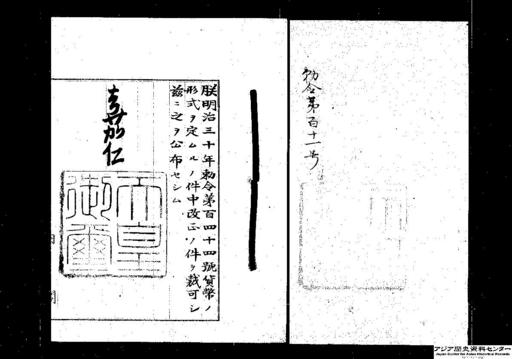 勅令第百十一号
朕明治三十年勅令第百四十四號貨幣ノ
形式ヲ定ムルノ件中改正ノ件ヲ裁可シ
茲ニ之ヲ公布セシム
嘉仁
天皇
御璽
アジア歴史資料センター
Japan Center for Asian Historical Records